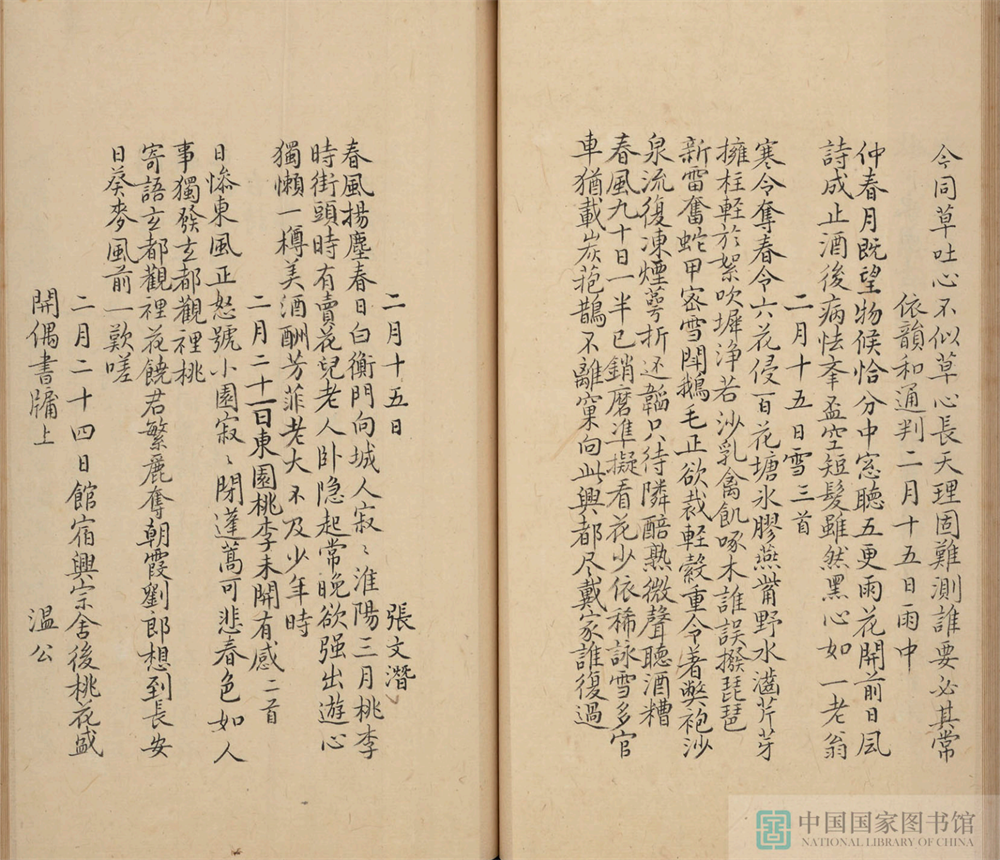 今同草吐心不似草心長天理固難測誰要必其常
依韻和通判二月十五日雨中
仲春月既望物候恰分中窓聽五更雨花開前日風
詩成止酒後病怯奉盃空短髮雖然黑心如一老翁
二月十五日雪三首
寒令奪春令六花侵百花塘氷膠燕觜野水齧芹芽
擁柱輕於絮吹墀浄若沙乳禽飢啄木誰誤撥琵琶
新雷奮蛇甲密雪鬪鵝毛正欲裁輕縠重令著弊袍沙
泉流復凍煙萼折还韜只待隣醅熟微聲聽酒糟
春風九十日一半已銷磨准擬看花少依稀詠雪多官
車猶載炭苑鵲不離窠向此興都尽戴家誰復過
二月十五日 張文潛
春風揚塵春日白衡門向城人寂〻淮陽三月桃李
時街頭時有賣花兒老人卧隐起常晚欲强出遊心
獨懶一樽美酒酬芳菲老大不及少年時
二月二十一日東園桃李未開有感二首
日慘東風正怒號小園寂〻閉蓬蒿可悲春色如人
事獨發玄都觀裡桃
寄語玄都觀裡花饒君繁麗奪朝霞劉郎想到長安
日葵麥風前一歎嗟
二月二十四日館宿興宗舍後桃花盛
開偶書牖上 溫公
中国国家图书馆
NATIONAL LIBRARY OF CHINA